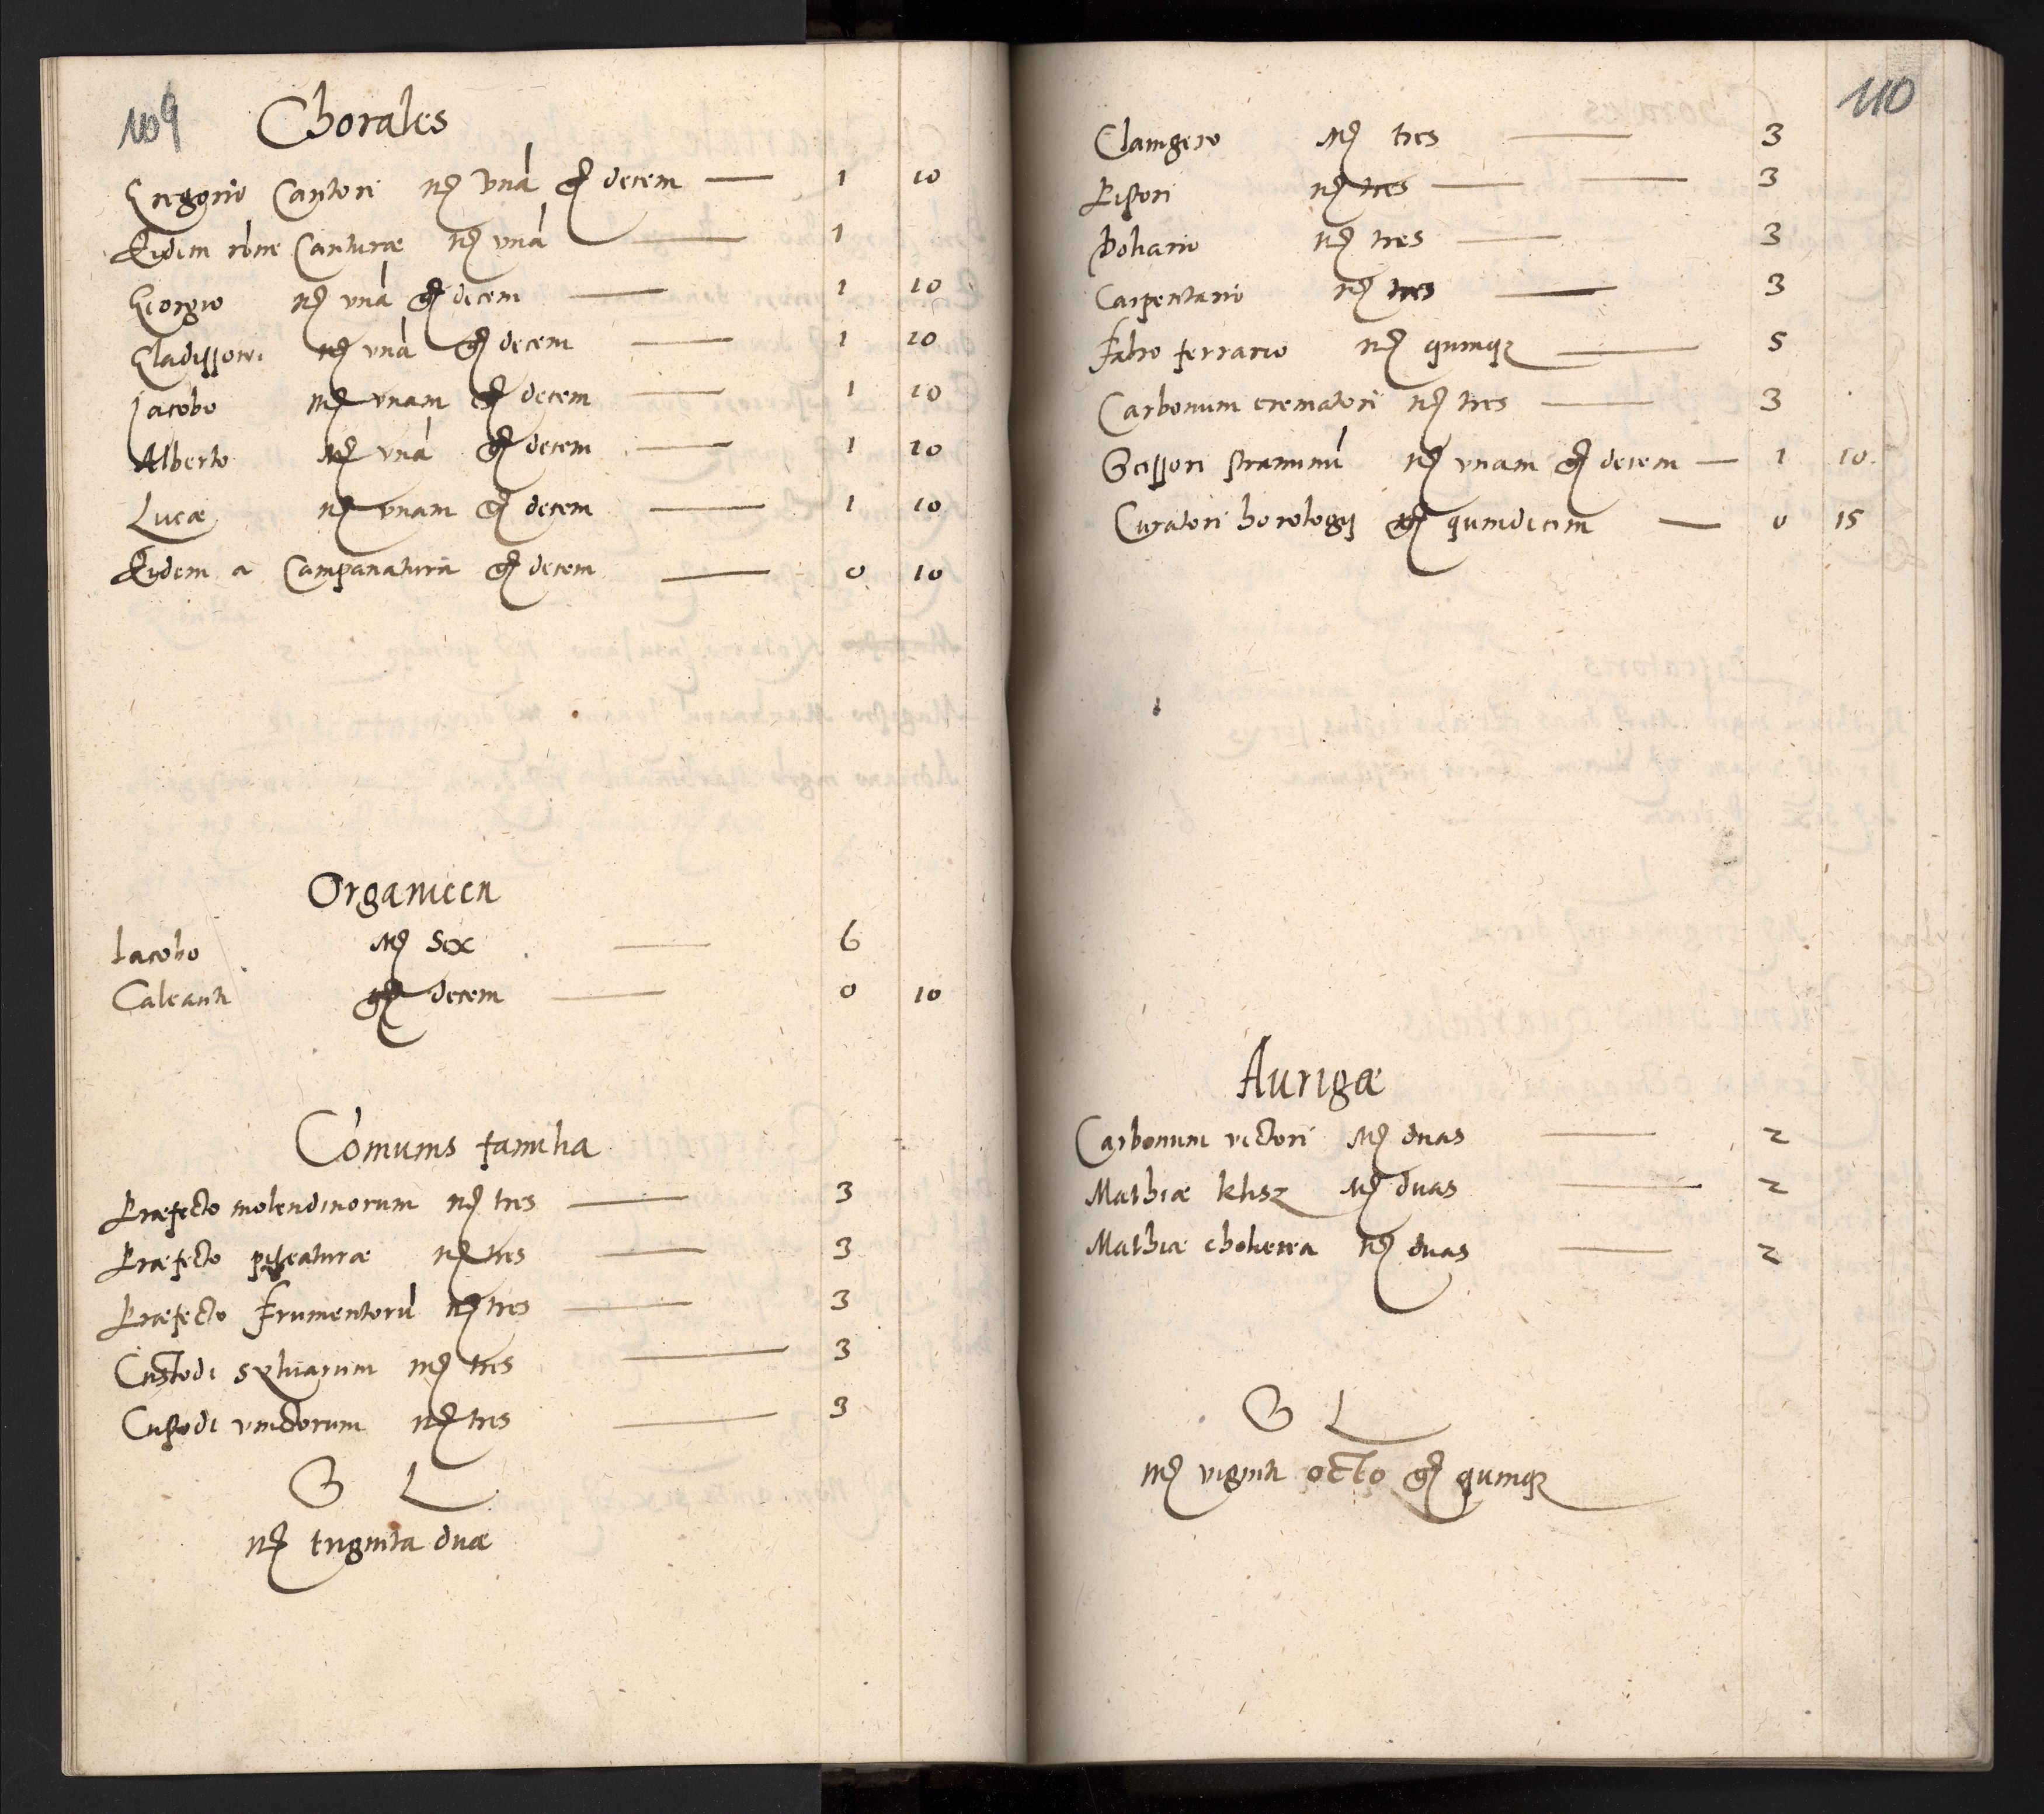 109
Chorales
Gregorio Cantori mr̃ vná gr̃ decem — 1 10
Eidem rõne Canturæ mr̃ vná — 1
Georgio mr̃ vná gr̃ decem — 1 10
Cladissoni mr̃ vná gr̃ decem — 1 10
Jacobo mr̃ vnam gr̃ decem — 1 10
Alberto mr̃ vná gr̃ decem — 1 10
Lucæ mr̃ vnam gr̃ decem — 1 10
Eidem a Campanatura gr̃ decem — 0 10
Organicen
Iacobo mr̃ sex — 6
Calcanti gr̃ decem — 0 10
Cõmunis familia
Præfecto molendinorum mr̃ tres — 3
Præfecto pileaturæ mr̃ tres — 3
Præfecto frumentorú mr̃ tres — 3
Custodi syluarum mr̃ tres — 3
Custodi vinctorum mr̃ tres — 3
G L
mr̃ triginta duæ
110
Clauigero mr̃ tres — 3
Pistori mr̃ tres — 3
Doliario mr̃ tres — 3
Carpentario mr̃ tres — 3
Fabro ferrario mr̃ quinqꝫ — 5
Carbonum crematori mr̃ tres — 3
Scissori straminú mr̃ vnam gr̃ decem — 1 10
Curatori horologij gr̃ quindecim — 0 15
Aurigæ
Carbonum vectori mr̃ duas — 2
Mathiæ klisz mr̃ duas — 2
Mathiæ choliewa mr̃ duas — 2
G L
mr̃ viginti octo gr̃ quinqꝫ